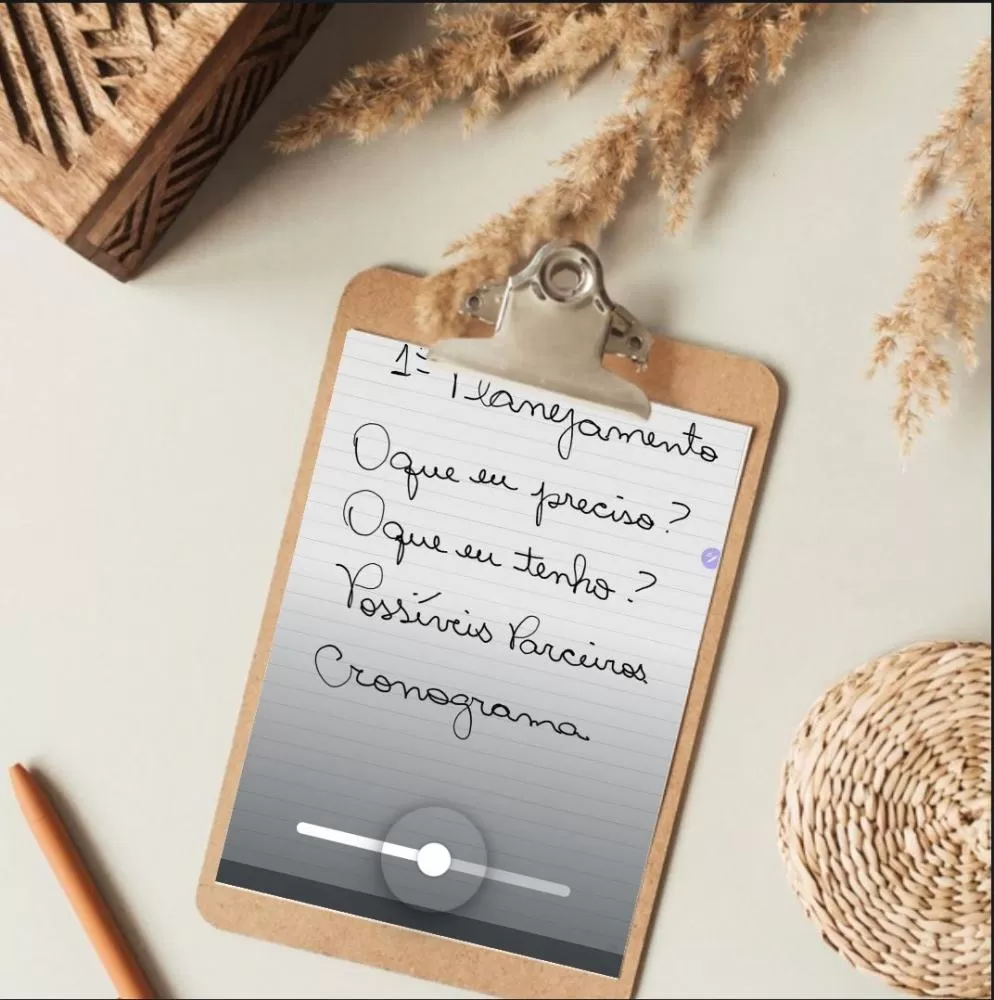 1º Planejamento
Oque eu preciso?
Oque eu tenho?
Possíveis Parceiros
Cronograma